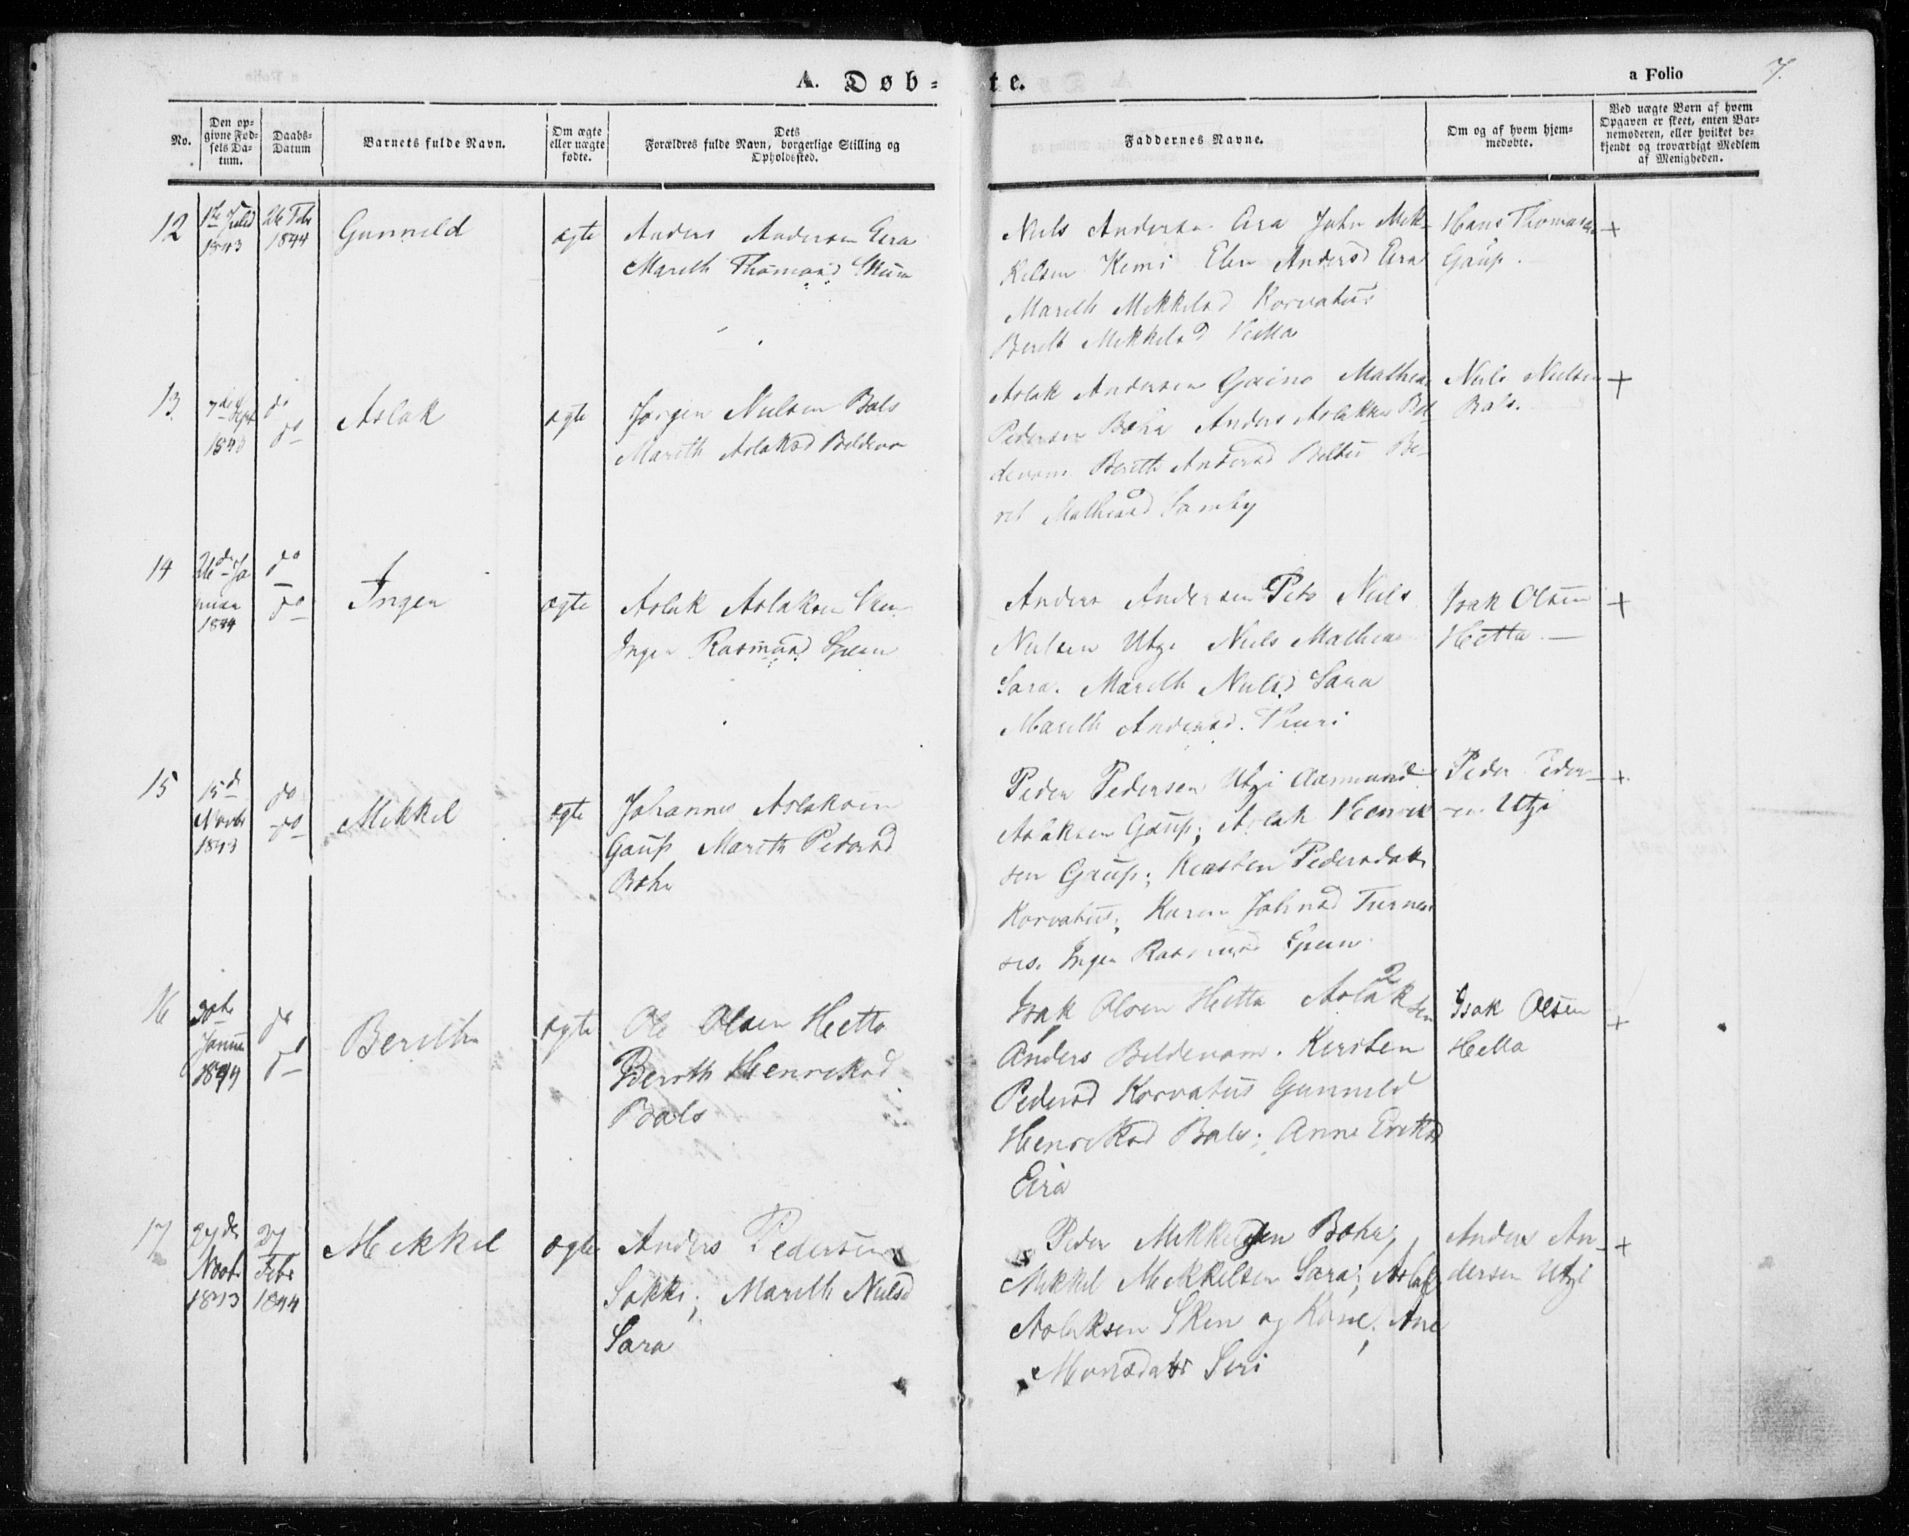 A. Døb-te.
a Folio 7.
No.
Den op-
givne Fød-
sels Da-
tum.
Daabs-
Datum
Barnets fulde Navn.
Om ægte
eller uægte
fødte.
Dets
Forældres fulde Navn, borgerlige Stilling og
Opholdssted.
Faddernes Navne.
Om og af hvem hjem-
medøbte.
Ved uægte Børn af hvem
Opgaven er skeet, enten Bar-
nemoderen, eller hvilket be-
kjendt og troværdigt Medlem
af Menigheden.
12
1843
26 Febr
1844
Gunneld
ægte
Anders Andersen Eira
Mareth Thomasd
Niels Andersen Eira John Mik-
kelsen Kemi Elen Andersd Eira
Mareth Mikkelsd Korvatus
Bereth Mikkelsd
Hans Thomasen
Gaup.
+
13
7de Sept
1843
do
do
Aslak
ægte
Jørgen Nielsen Bals
Mareth Aslaksd
Aslak Andersen Gaino Mathis
Pedersen Bæhr Anders Aslaksen Bel-
devam Berith Andersd Be-
ret Mathisd Somby
Niels Nielsen
Bals.
+
14
26de Ja
nuar
1844
do
do
Ingen
ægte
Aslak Aslaksen
Ingen Rasmusd
Anders Andersen Niels
Nielsen Utzi Niels Mathis
Sara. Mareth Nielsd Sara
Mareth Andersd. Thuri
Isak Olsen
Hætta
+
15
15de
Novbr
1843
do
do
Mikkel
ægte
Johannes Aslaksen
Gaup Mareth Pedersd
Bæhr
Peder Pedersen Utzi Aasmund
Aslaksen Gaup; Aslak Henrik
sen Gaup; Kirsten Pedersdatr
Korvatus; Karen Johnsd Turnen
sis. Ingen Rasmusd
Peder Peder-
sen Utzi
+
16
30te
Januar
1844
do
do
Berith
ægte
Ole Olsen Hætta
Berith Henriksd
Baals
Isak Olsen Hetta Aslaksen
Anders Beldevam. Kirsten
Pedersd Korvatus Gunneld
Henriksd Bals; Anne Eriksd
Eira
Isak Olsen
Hetta
+
17
27de
Novbr
1843
27
Febr
1844
Mikkel
ægte
Anders Pedersen
Sokki; Mareth Nielsd
Sara
Peder Mikkelsen Bæhr;
Mikkel Mikkelsen Sara; Aslak
Aslaksen Sken og Kone; Ane
Monsdatr Siri
Anders An-
dersen Utzi
+